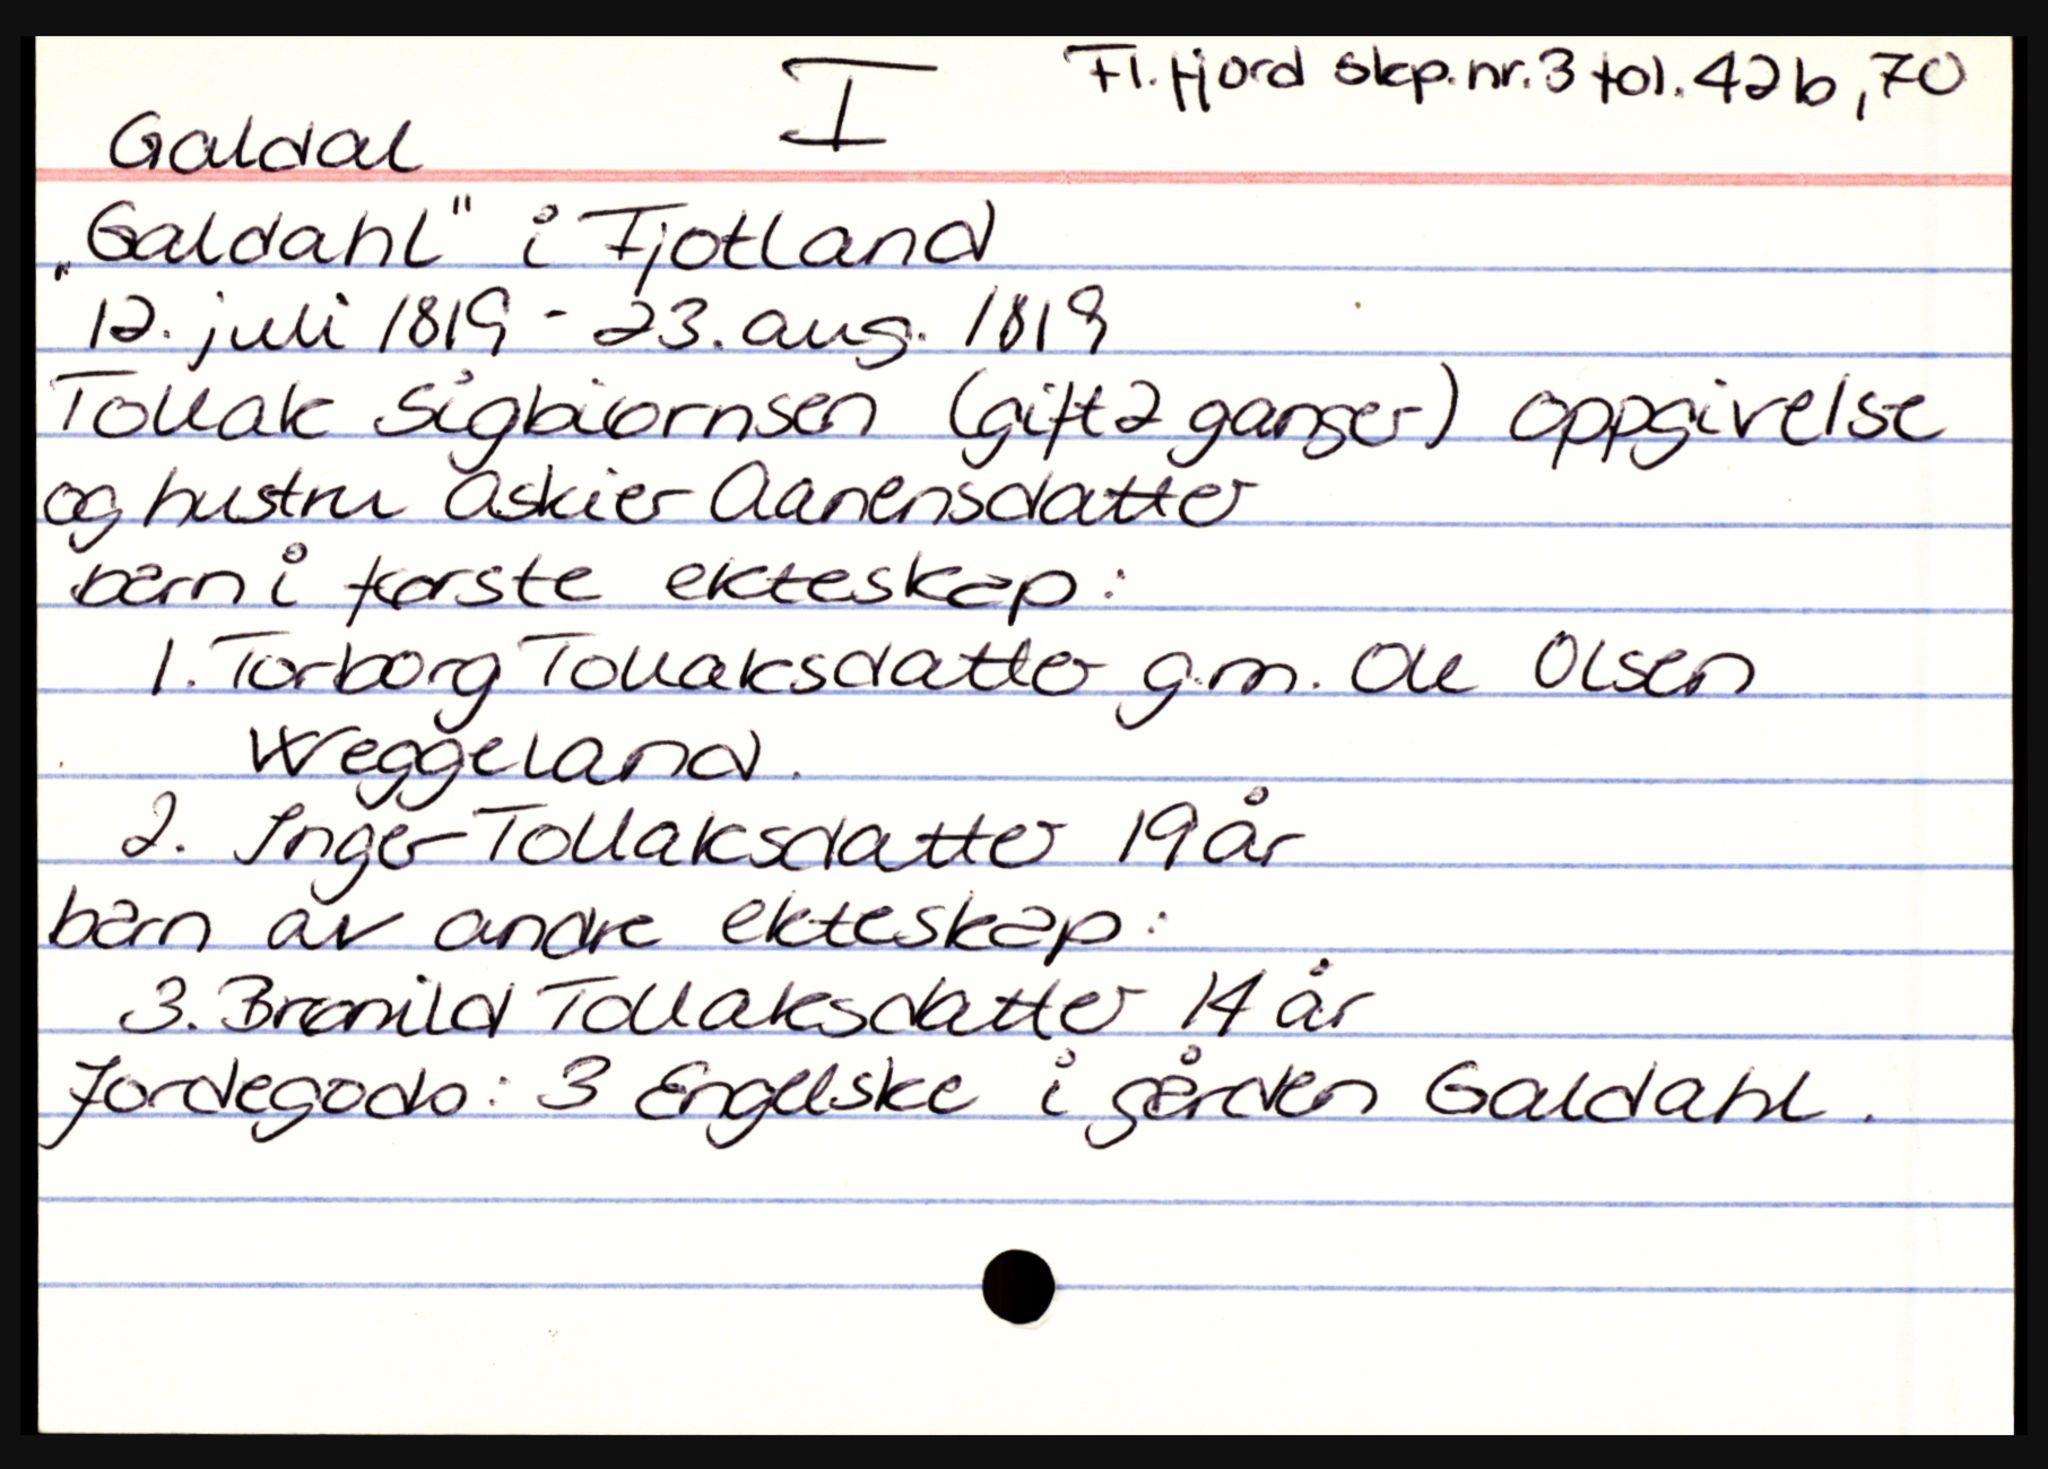 Fl. fjord skp. nr. 3 fol. 42b, 70
I
Galdal
„Galdahl" i Fjotland
12. juli 1819 - 23. aug. 1819
Tollak Sigbiørnsen (gift 2 ganger) oppgivelse
og hustru Askier Aanensdatter
barn i første ekteskap:
1. Torborg Tollaksdatter g.m. Ole Olsen
Weggeland.
2. Inger Tollaksdatter 19 år
barn av andre ekteskap:
3. Brønild Tollaksdatter 14 år
Jordegods: 3 Engelske i gården Galdahl.